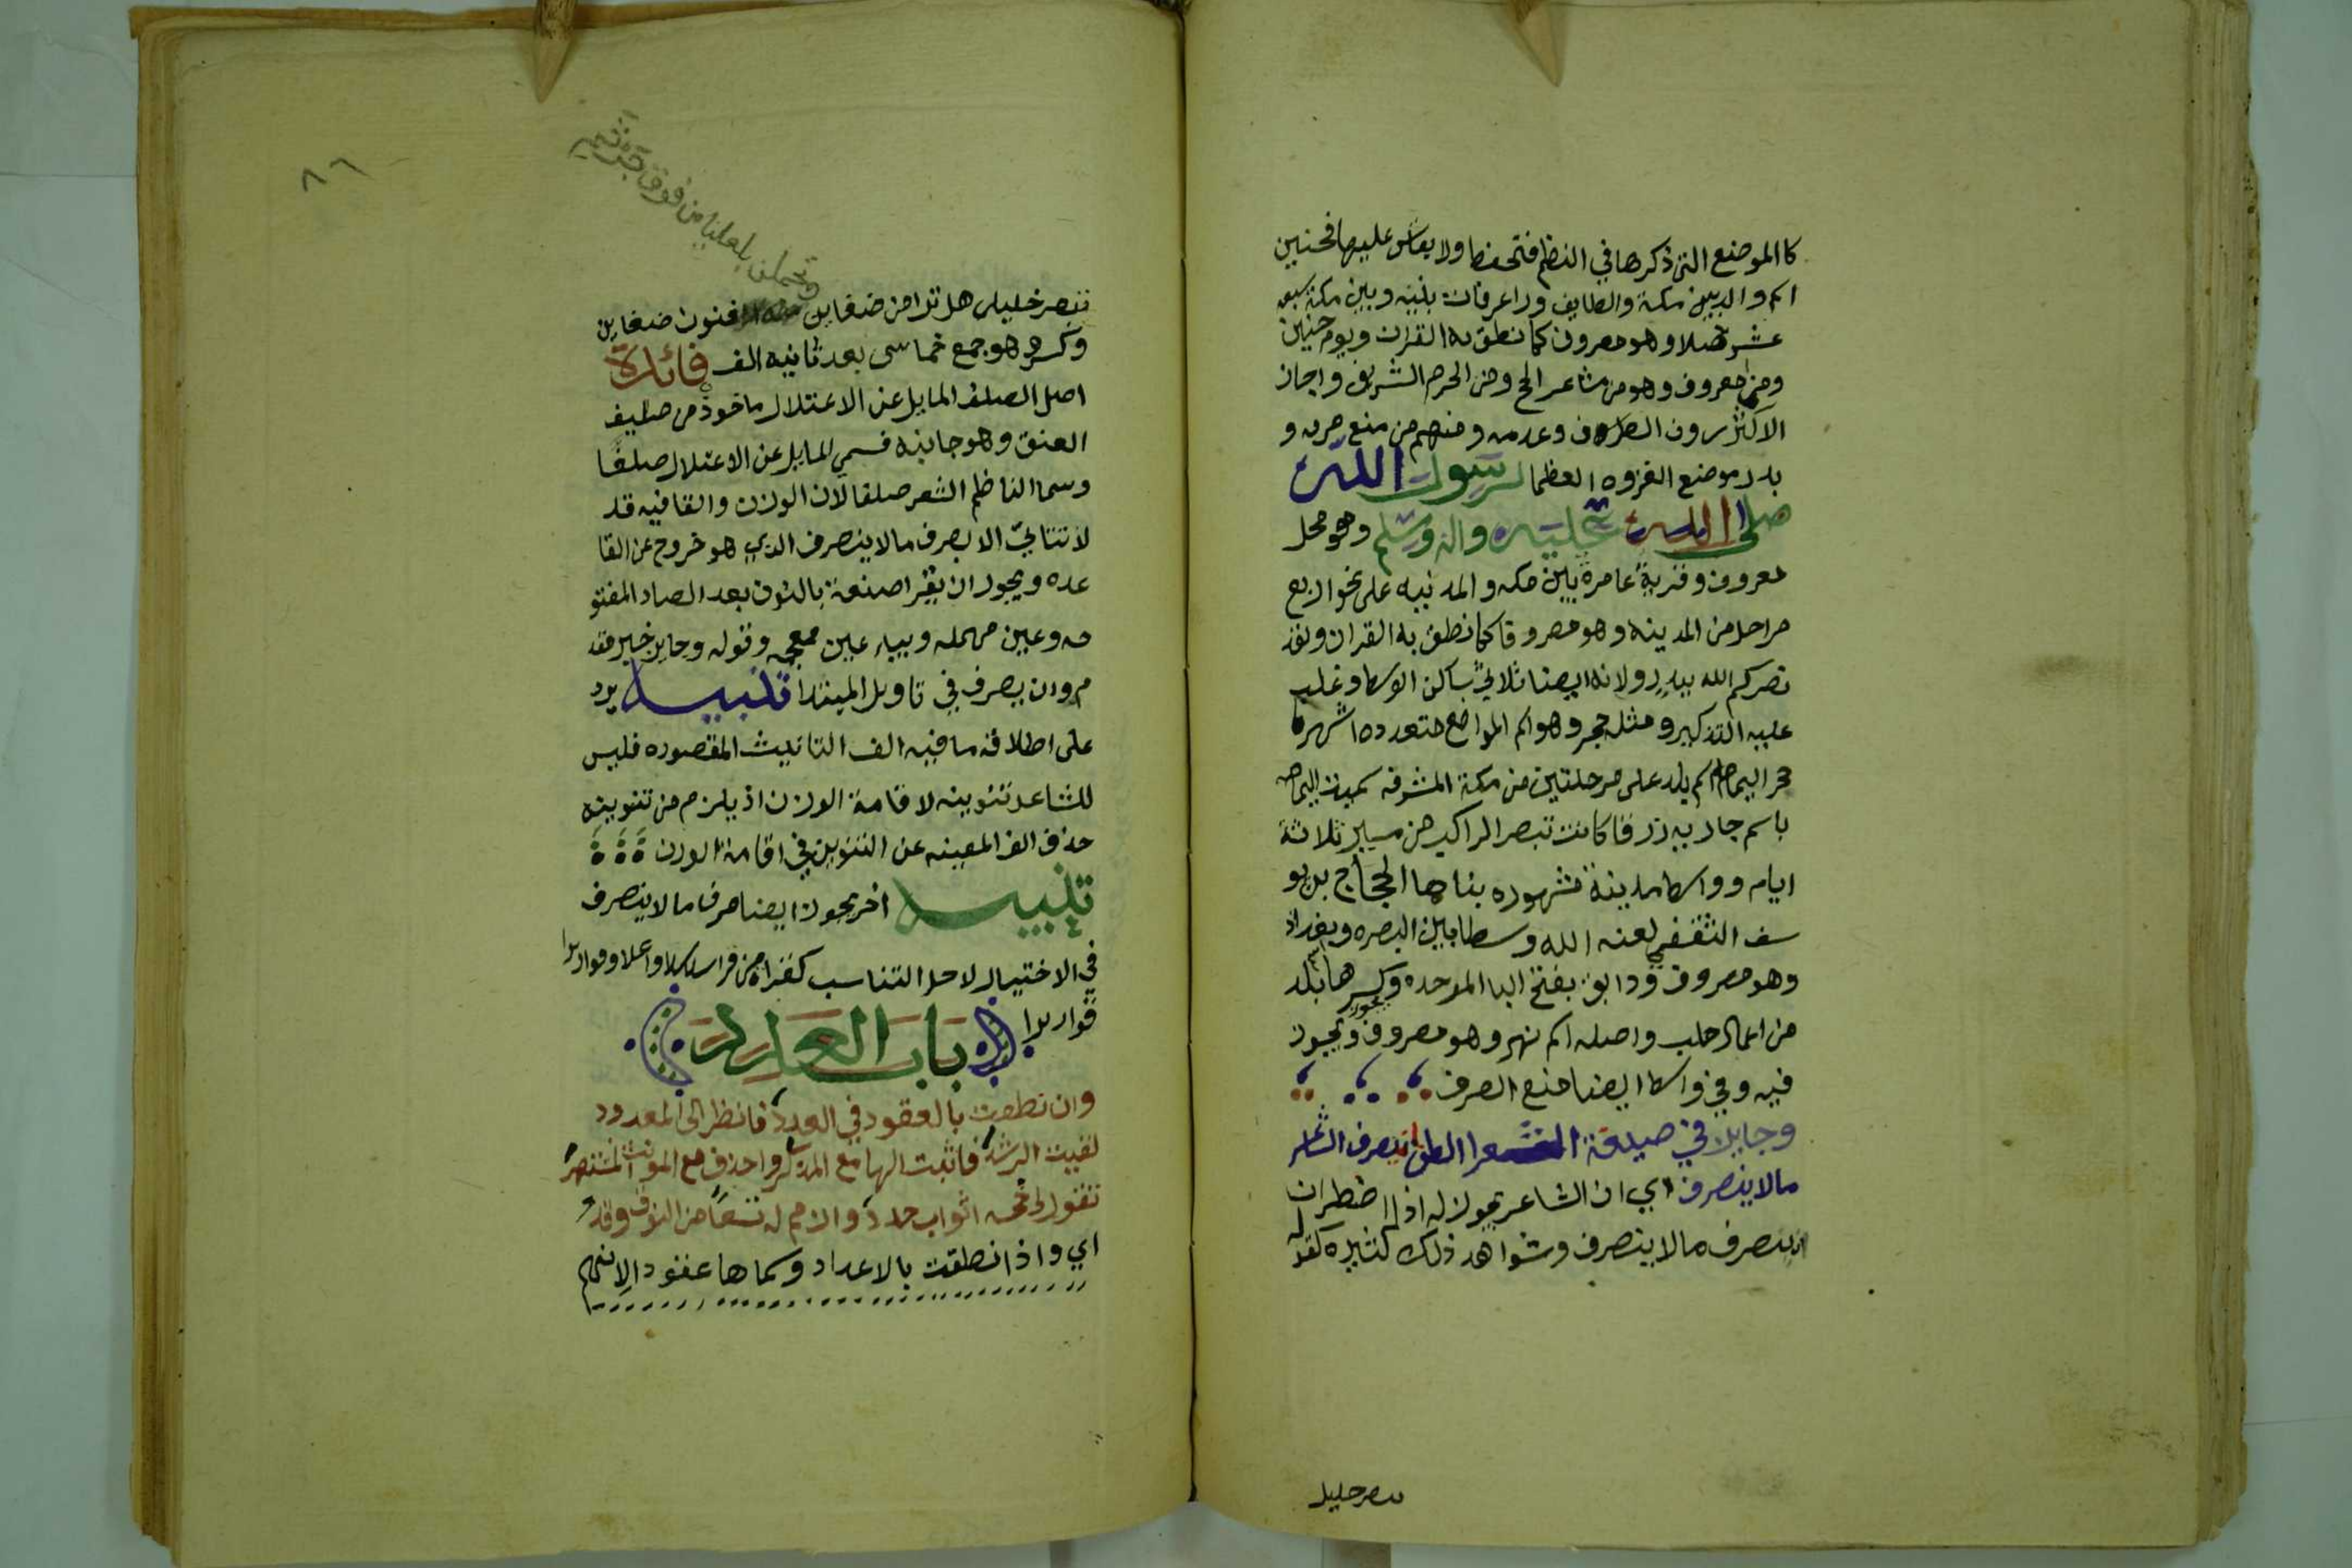 كا المواضع التي ذكرها في النظم فتحفظ ولا يقاس عليها فحنين
اسم واد بين مكة والطايف ورا عرفات بينه وبين مكة بضعه
عشر ميلا وهو مصروف كما نطق به القران ويوم حنين
ومنى معروف وهو من مشاعر الحج ومن الحرم الشريف واجاز
الاكثرون الصرف وعدمه ومنهم من منع صرفه و
بدر موضع الغزوه العظما لرسول الله
صلى الله عليه واله وسلم وهو محل
معروف وقرية عامرة بين مكه والمدينه على نحو اربع
مراحل من المدينه وهو مصروفا كما نطق به القران ولقد
نصركم الله ببدر ولانه ايضا ثلاثي ساكن الوسط وغلب
عليه التذكير ومثله حجر وهو اسم المواضع متعدده اشهرها
حجر اليمامه اسم بلد على مرحلتين من مكة المشرفه سميت اليمامه
باسم جاريه زرقا كانت تبصر الراكب من مسير ثلاثة
ايام وواسط مدينة مشهوره بناها الحجاج بن يو
سف الثقفي لعنه الله وسطا بين البصره وبغداد
وهو مصروف ودابق بفتح البا الموحده وكسرها بلد
من اعمال حلب واصله اسم نهر وهو مصروف ويجوز
فيه وفي واسط ايضا منع الصرف
وجايز في صيغة الشعر الصلف ان يصرف الشاعر
مالا ينصرف اي ان الشاعر يجوز له اذا اضطر ان
ان يصرف مالا ينصرف وشواهد ذلك كثيره كقوله
تبصر خليل
٨٦
وتحملن بالعليا من فوق جرثم
تبصر خليلي هل ترا من ضعاين فنون ضعاين
وكسر وهو جمع خماسى بعد ثانيه الف فائدة
اصل الصلف المايل عن الاعتدال ماخوذ من صليف
العنق وهو جانبه فسمي المايل عن الاعتدال صلفا
وسما الناظم الشعر صلفا لان الوزن والقافيه قد
لا تتاتي الا بصرف مالا ينصرف الذي هو خروج عن القا
عده ويجوز ان يقرا صنعة بالنون بعد الصاد المفتو
حه وعين مهمله وبياء عين معجمه وقوله وجايز خبر مقد
م وان يصرف في تاويل المبتدا تنبيه يرد
على اطلاقه ما فيه الف التانيث المقصوره فليس
للشاعر تنوينه لاقامة الوزن اذ يلزم من تنوينه
حذف الف المغنيه عن التنوين في اقامة الوزن
تنبيه اخر يجوز ايضا صرف مالا ينصرف
في الاختيار لاجل التناسب كقراة من قرا سلاسلا واغلالا وقواريرا
قواريرا باب العدد
وان نطقت بالعقود في العدد فانظر الى المعدود
لقيت الرشد فاثبت الها مع المذكر واحذف مع المونث المشتهر
تقول لي خمسه اثواب جدد وازمم له تسعا من النوق وقد
اي واذا نطقت بالاعداد وسماها عقود الانهم